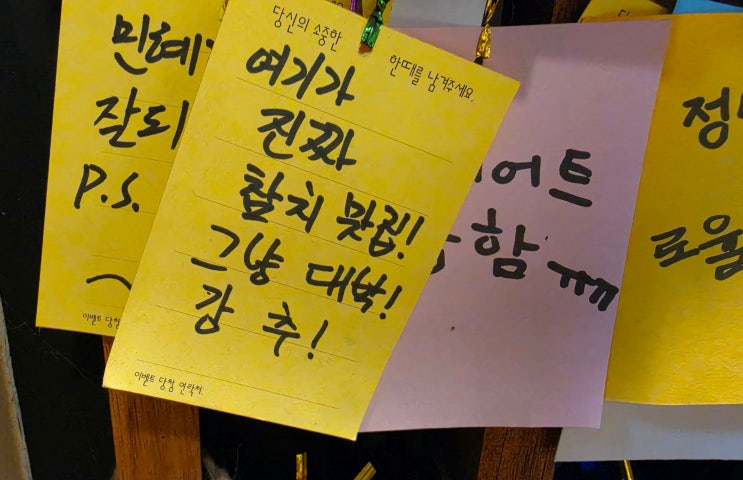 당신의 소중한
한때를 남겨주세요.
여기가
진짜
참치 맛집!
그냥 대박!
강 추!
이벤트 당첨 연락처:
민혜
잘되
P.S.
이벤트 당첨
어트
함 ㅠㅠ
정
로움